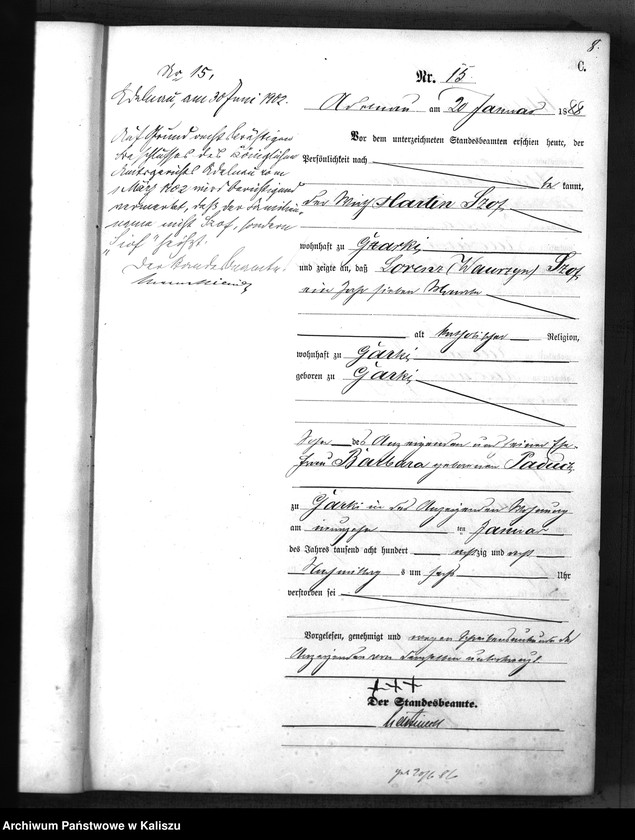 8.
C.
No 15,
Adelnau, am 30 Juni 1902.
Auf Grund rechtskräftigen
Beschlusses des Königlichen
Amtsgerichts Adelnau vom
März 1902 wird berichtigend
vermerkt, daß der Familien
name nicht Szof, sondern
„ " heißt.
Der Standesbeamte.
Nr. 15
Adelnau am 20 Januar 1888
Vor dem unterzeichneten Standesbeamten erschien heute, der
Persönlichkeit nach
be kannt,
der Wirth Martin Szof
wohnhaft zu Garki,
und zeigte an, daß Lorenz (Wawrzyn) Szof,
ein Jahr sieben Monate
alt katholischer Religion,
wohnhaft zu Garki,
geboren zu Garki,
Sohn des Anzeigenden und seiner Ehe-
frau Barbara geborenen
zu Garki in des Anzeigenden Wohnung
am neunzehn ten Januar
des Jahres tausend acht hundert achtzig und acht
Nachmittag s um sechs Uhr
verstorben sei
Vorgelesen, genehmigt und wegen Schreibensunkunde des
Anzeigenden von demselben unterkreuzt.
+++
Der Standesbeamte.
20/6 86
Archiwum Państwowe w Kaliszu